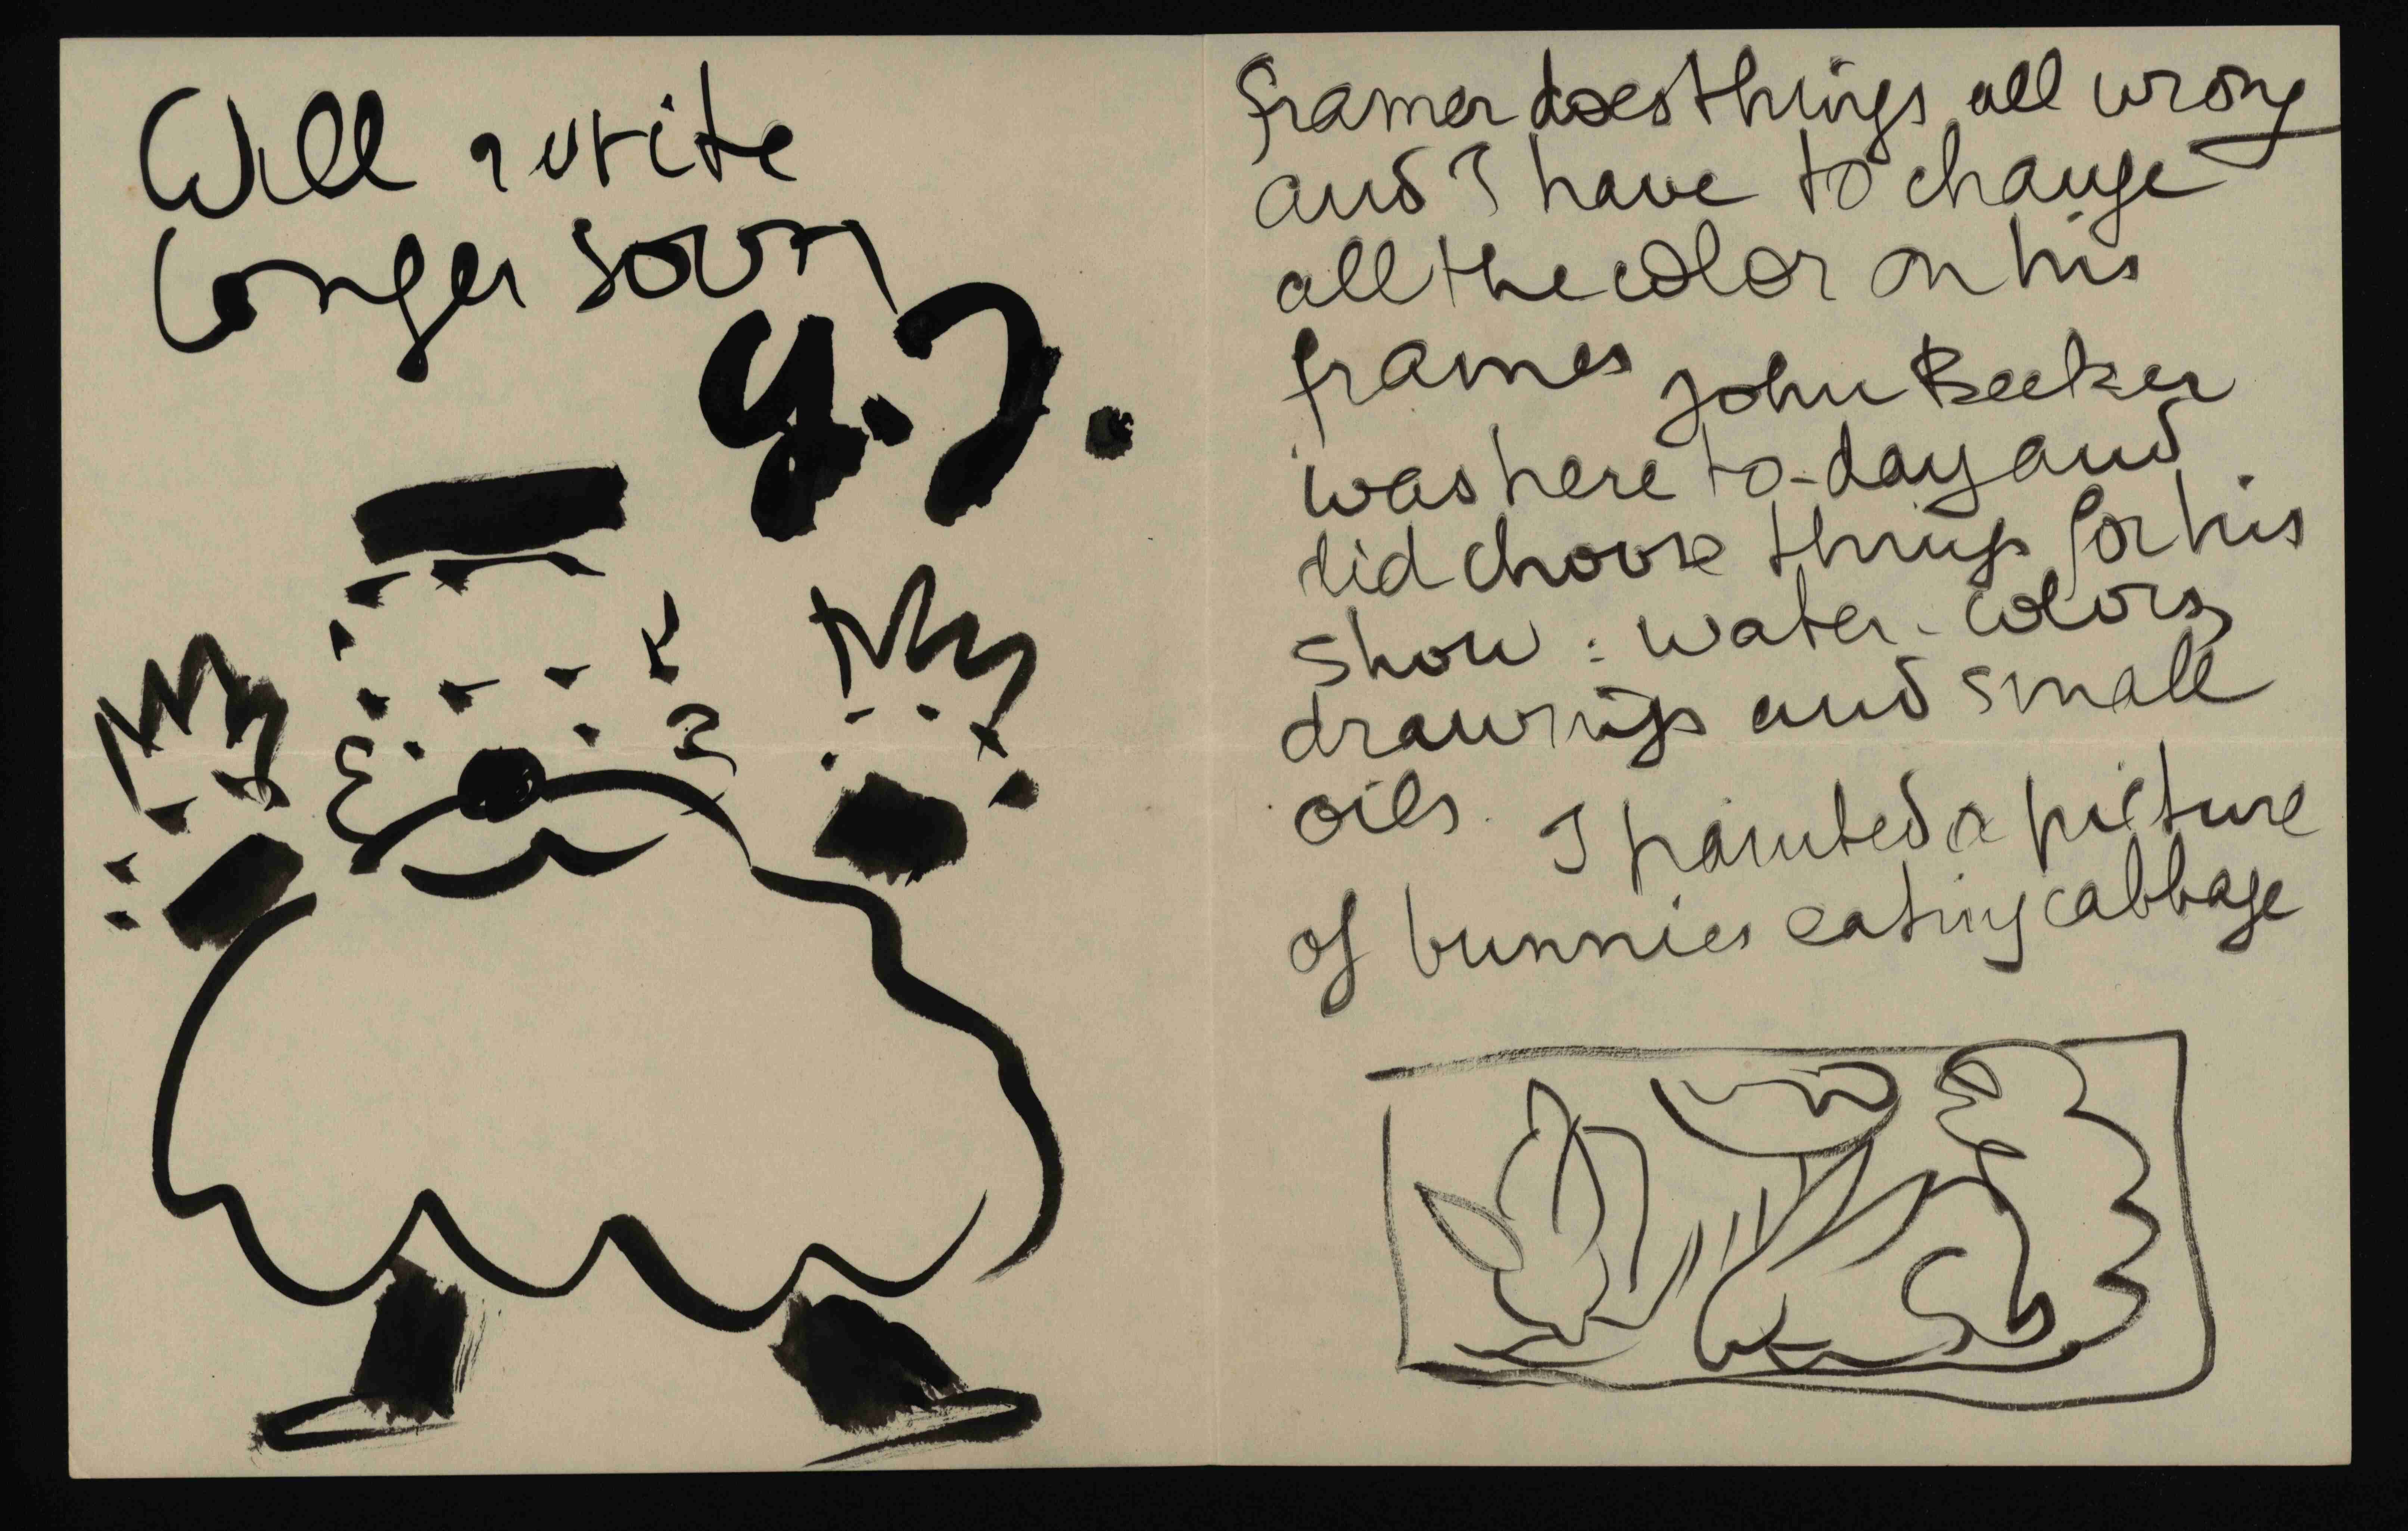 Will write
longer soon
Y.?.
framer does things all wrong
and I have to change
all the color on his
frames John Becker
was here to-day and
did choose things for his
show : water-colors,
drawings and small
oils. I painted a picture
of bunnies eating cabbage